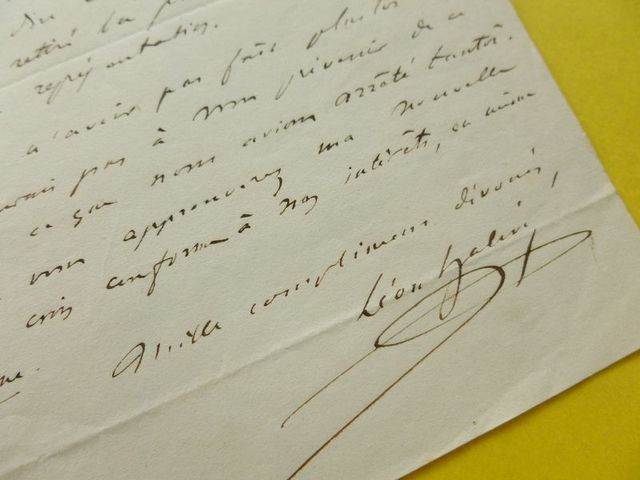 retiré la
représentation.
avoir pas fait plus tôt
pas à nous prévenir de ce
ce que nous avions arrêté tantôt.
vous approuverez ma nouvelle
crois conforme à nos intérêts, en
Mille compliments dévoués,
Léon Halévy